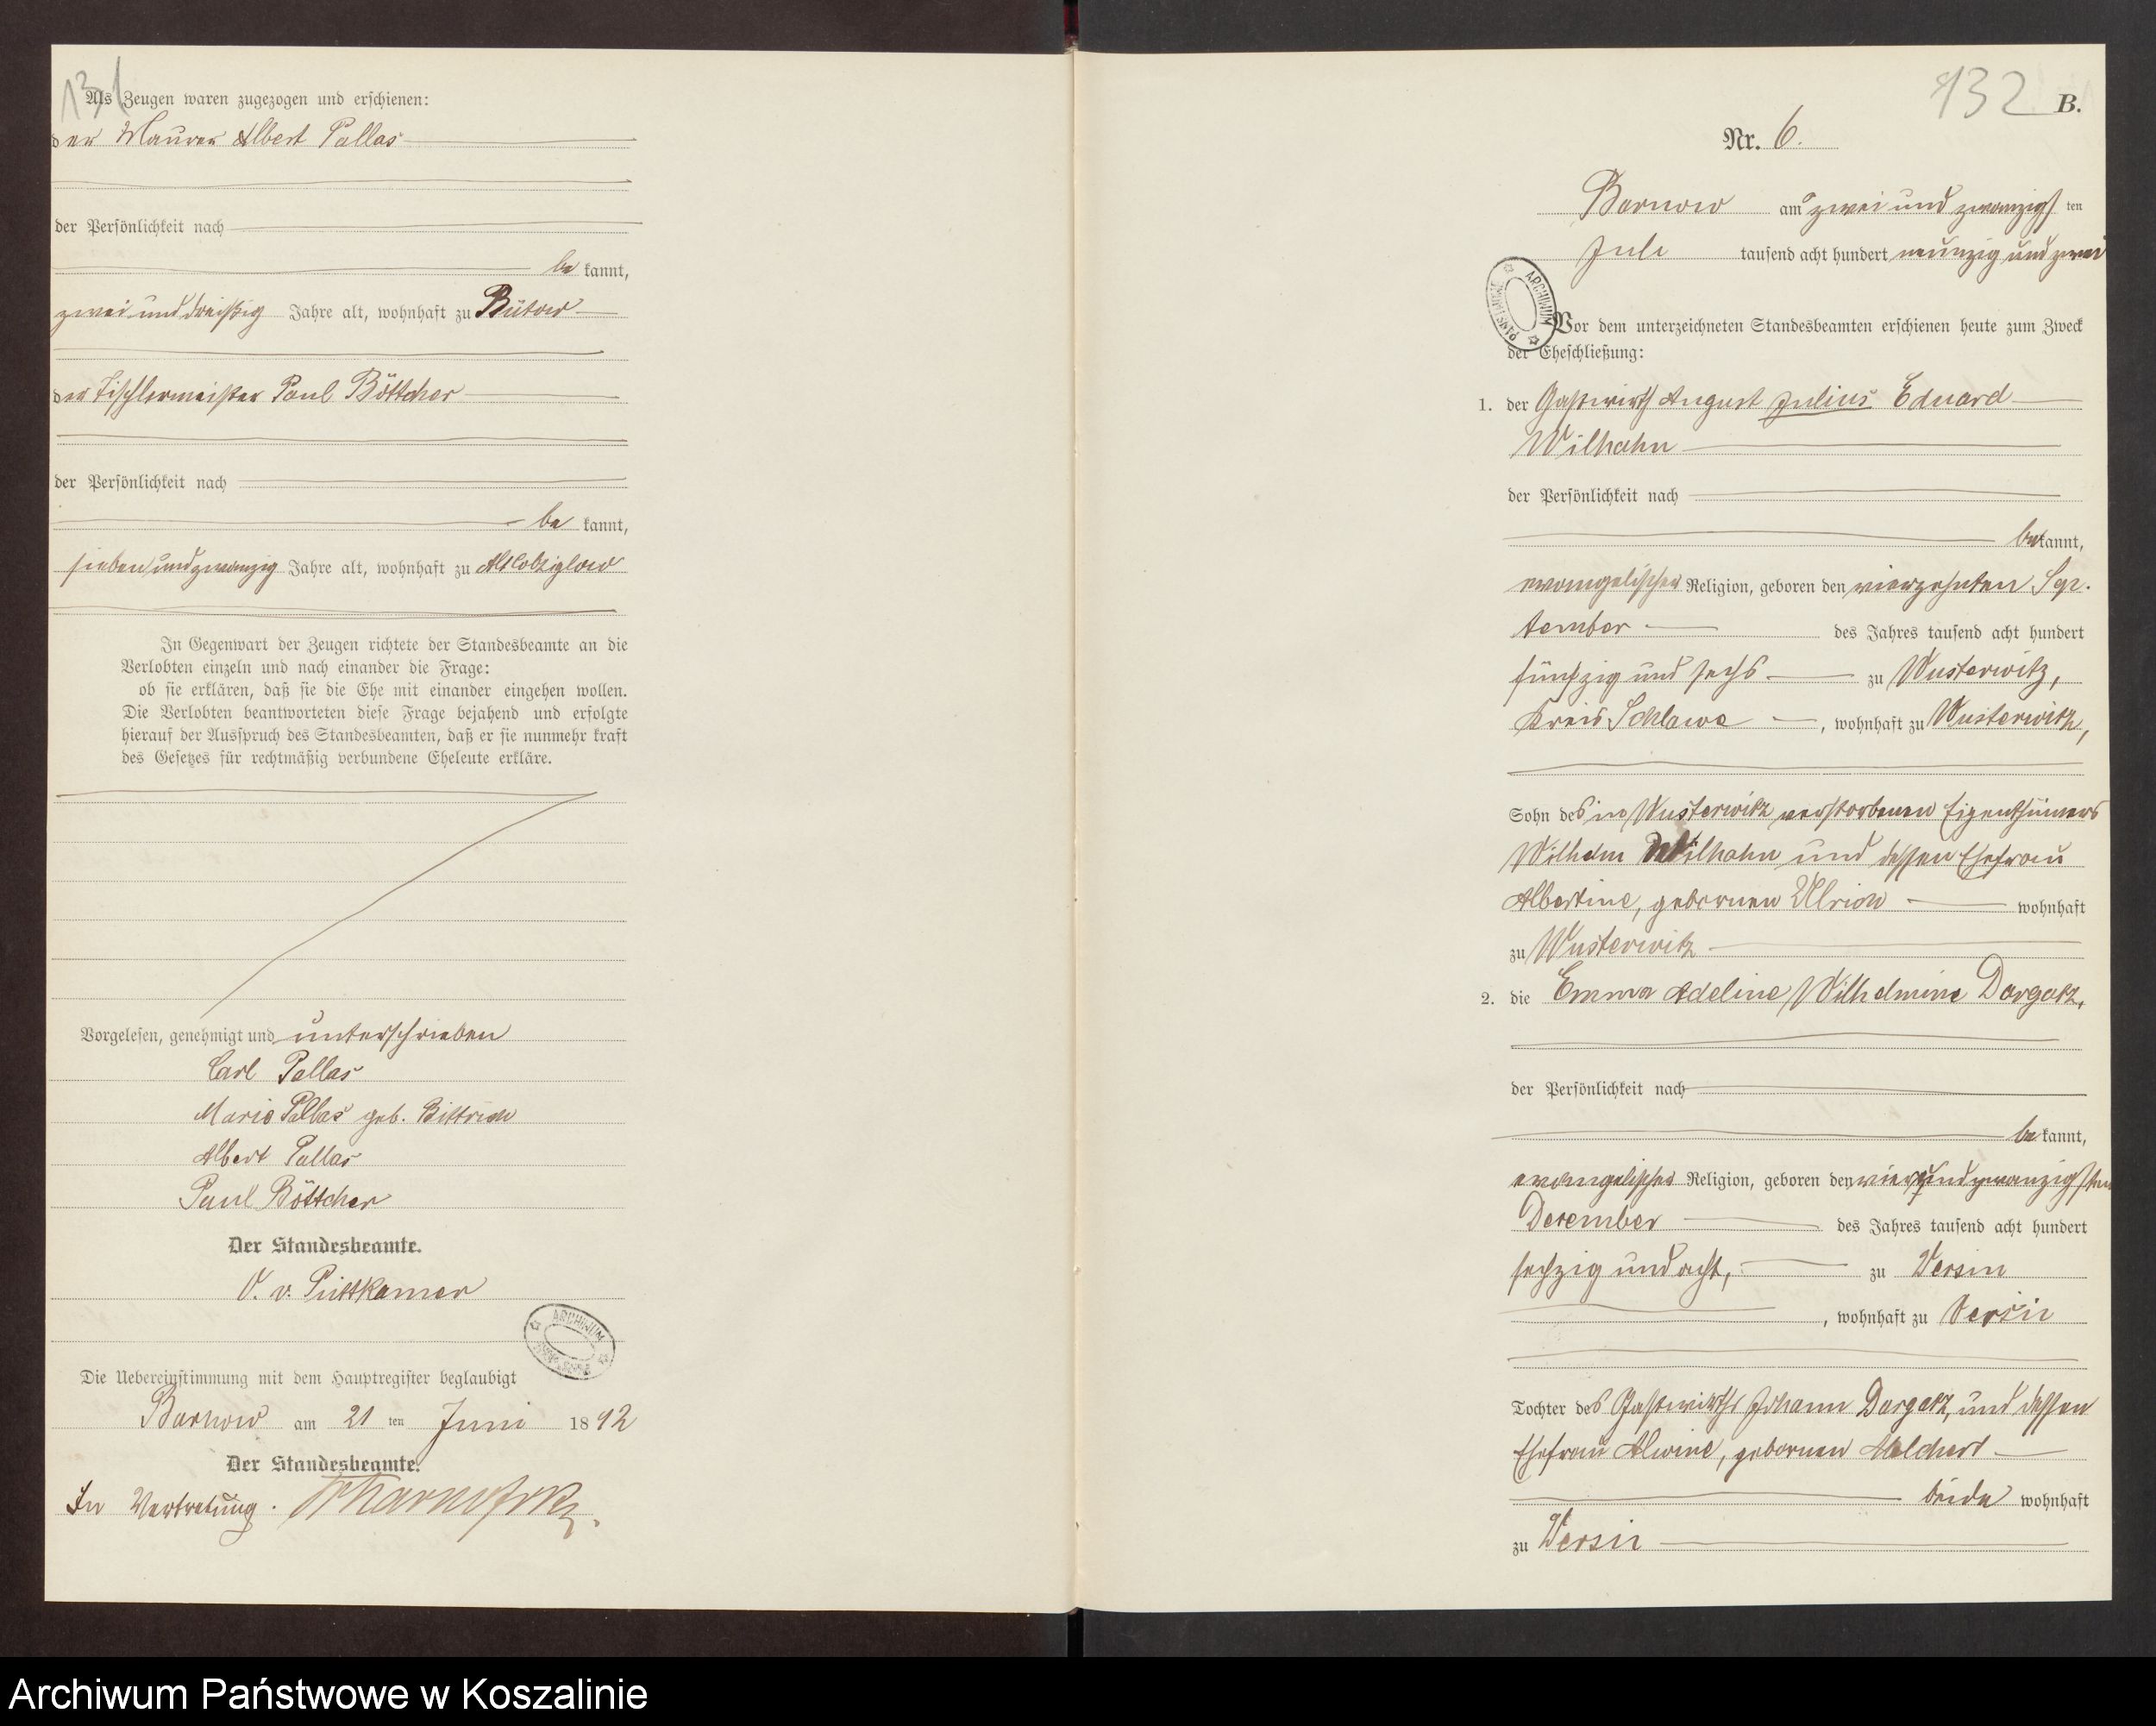 131
Als Zeugen waren zugezogen und erschienen:
der Maurer Albert Pallas
der Persönlichkeit nach
be kannt,
zwei und dreißig Jahre alt, wohnhaft zu Bütow
der Tischlermeister Paul Böttcher
der Persönlichkeit nach
be kannt,
sieben und zwanzig Jahre alt, wohnhaft zu Alt Colziglow
In Gegenwart der Zeugen richtete der Standesbeamte an die
Verlobten einzeln und nach einander die Frage:
ob sie erklären, daß sie die Ehe mit einander eingehen wollen.
Die Verlobten beantworteten diese Frage bejahend und erfolgte
hierauf der Ausspruch des Standesbeamten, daß er sie nunmehr kraft
des Gesetzes für rechtmäßig verbundene Eheleute erkläre.
Vorgelesen, genehmigt und unterschrieben
Carl Pallas
Marie Pallas geb. Bittrich
Albert Pallas
Paul Böttcher
Der Standesbeamte.
v. Puttkamer
ARCHIWUM
Die Uebereinstimmung mit dem Hauptregister beglaubigt
Barnow am 21 ten Juni 18 92
Der Standesbeamte.
In Vertretung.
132
B.
Nr. 6.
Barnow am zwei und zwanzigs ten
Juli tausend acht hundert neunzig und zwei
ARCHIWUM PAŃSTWOWE
Vor dem unterzeichneten Standesbeamten erschienen heute zum Zweck
der Eheschließung:
1. der Gastwirth August Julius Eduard
Wilhahn
der Persönlichkeit nach
be kannt,
evangelischer Religion, geboren den vierzehnten Sep-
tember des Jahres tausend acht hundert
fünfzig und sechs zu Wusterwitz,
Kreis Schlawe, wohnhaft zu Wusterwitz,
Sohn des in Wusterwitz verstorbenen Eigenthümers
Wilhelm Wilhahn und dessen Ehefrau
Albertine, gebornen Ulrich wohnhaft
zu Wusterwitz
2. die Emma Adeline Wilhelmine Dargatz,
der Persönlichkeit nach
be kannt,
evangelischer Religion, geboren den vier und zwanzigsten
Dezember des Jahres tausend acht hundert
sechzig und acht, zu Versin
, wohnhaft zu Versin
Tochter des Gastwirths Johann Dargatz, und dessen
Ehefrau Alwine, gebornen Melchert
beide wohnhaft
zu Versin
Archiwum Państwowe w Koszalinie